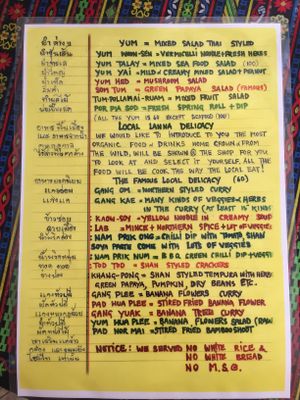 ยำต่างๆ YUM = MIXED SALAD THAI STYLED
ยำวุ้นเส้น YUM NOON-SEN = VERMICELLI NOODLE+FRESH HERBS
ยำทะเล YUM TALAY = MIXED SEA FOOD SALAD (100)
ยำใหญ่ YUM YAI = MILD & CREAMY MIXED SALAD+PEANUT
ยำเห็ด YUM HED = MUSHROOM SALAD
ส้มตำ SOM TUM = GREEN PAPAYA SALAD (FAMOUS)
ตำผลไม้ TUM-POLLAMAI-RUAM = MIXED FRUIT SALAD
ปอเปี๊ยะสด POR PIA SOD = FRESH SPRING ROLL + DIP
(ALL THE YUM IS 60 EXCEPT SEAFOOD (100))
LOCAL LANNA DELICACY
WE WOULD LIKE TO INTRODUCE TO YOU THE MOST
ORGANIC FOOD & DRINKS HOME GROWN & FROM
THE WILD, WILL BE SHOWN @ THE SHOP FOR YOU
TO LOOK AT AND SELECT IT YOURSELF, ALL THE
FOOD WILL BE COOK THE WAY THE LOCAL EAT!
THE FAMOUS LOCAL DELICACY (60)
แกงอ่อม GANG OM = NORTHERN STYLED CURRY
แกงแค GANG KAE = MANY KINDS OF VEGGIES, HERBS
IN THE CURRY (AT LEAST 7 KINDS)
ข้าวซอย KAON-SOY = YELLOW NOODLE IN CREAMY SOUP
LAB = MINCE + NORTHERN SPICE + LOT OF VEGGIES
NAM PRIK ONG = CHILLI DIP WITH TOMATO, SHAN
SOYA PASTE COME WITH LOTS OF VEGGIES
น้ำพริกหนุ่ม NAM PRIK NUM = B.B.Q. GREEN CHILLI DIP+VEGGI
TOD TAD = SHAN STYLED CRACKERS
KHANG-PONG = SHAN STYLED TEMPURA WITH HERB
GREEN PAPAYA, PUMPKIN, DRY BEANS ETC.
แกงหัวปลี GANG PLEE = BANANA FLOWERS CURRY
ผัดหัวปลี PAD HUA PLEE = STIRED FRIED BANANA FLOWER
แกงหยวกกล้วย GANG YUAK = BANANA TREE CURRY
ยำหัวปลี YUM HUA PLEE = BANANA FLOWERS SALAD (RAW)
ผัดหน่อไม้ PAD NOR MAI = STIRED FRIED BAMBOOSHOOT
NOTICE: WE SERVED NO WHITE RICE &
NO WHITE BREAD
NO M.S.G.